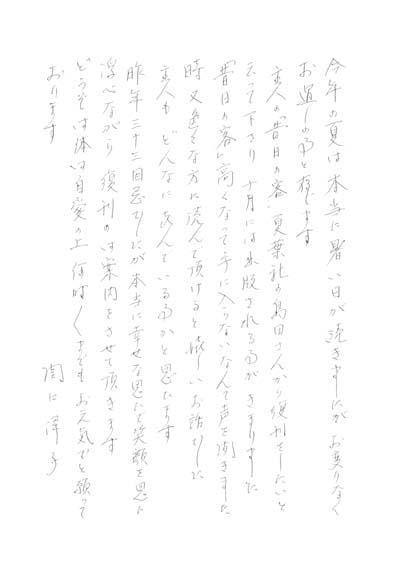 今年の夏は本当に暑い日が続きましたが お変りなく
お過しの事と存じます
主人の「昔日の客」夏葉社の島田さんから復刊をしたいと
云って下さり 十月には出版される事がきまりました
「昔日の客」高くなって手に入らないなんて声を聞きました
時 又色々な方に読んで頂けると嬉しいお話でした
主人も どんなに喜んでいる事かと思います
昨年三十三回忌でしたが本当に幸せな思いで笑顔を思い
浮べながら 復刊の御案内をさせて頂きます
どうぞ御体御自愛の上 何時〳〵までもお元気でと願って
おります
関口洋子